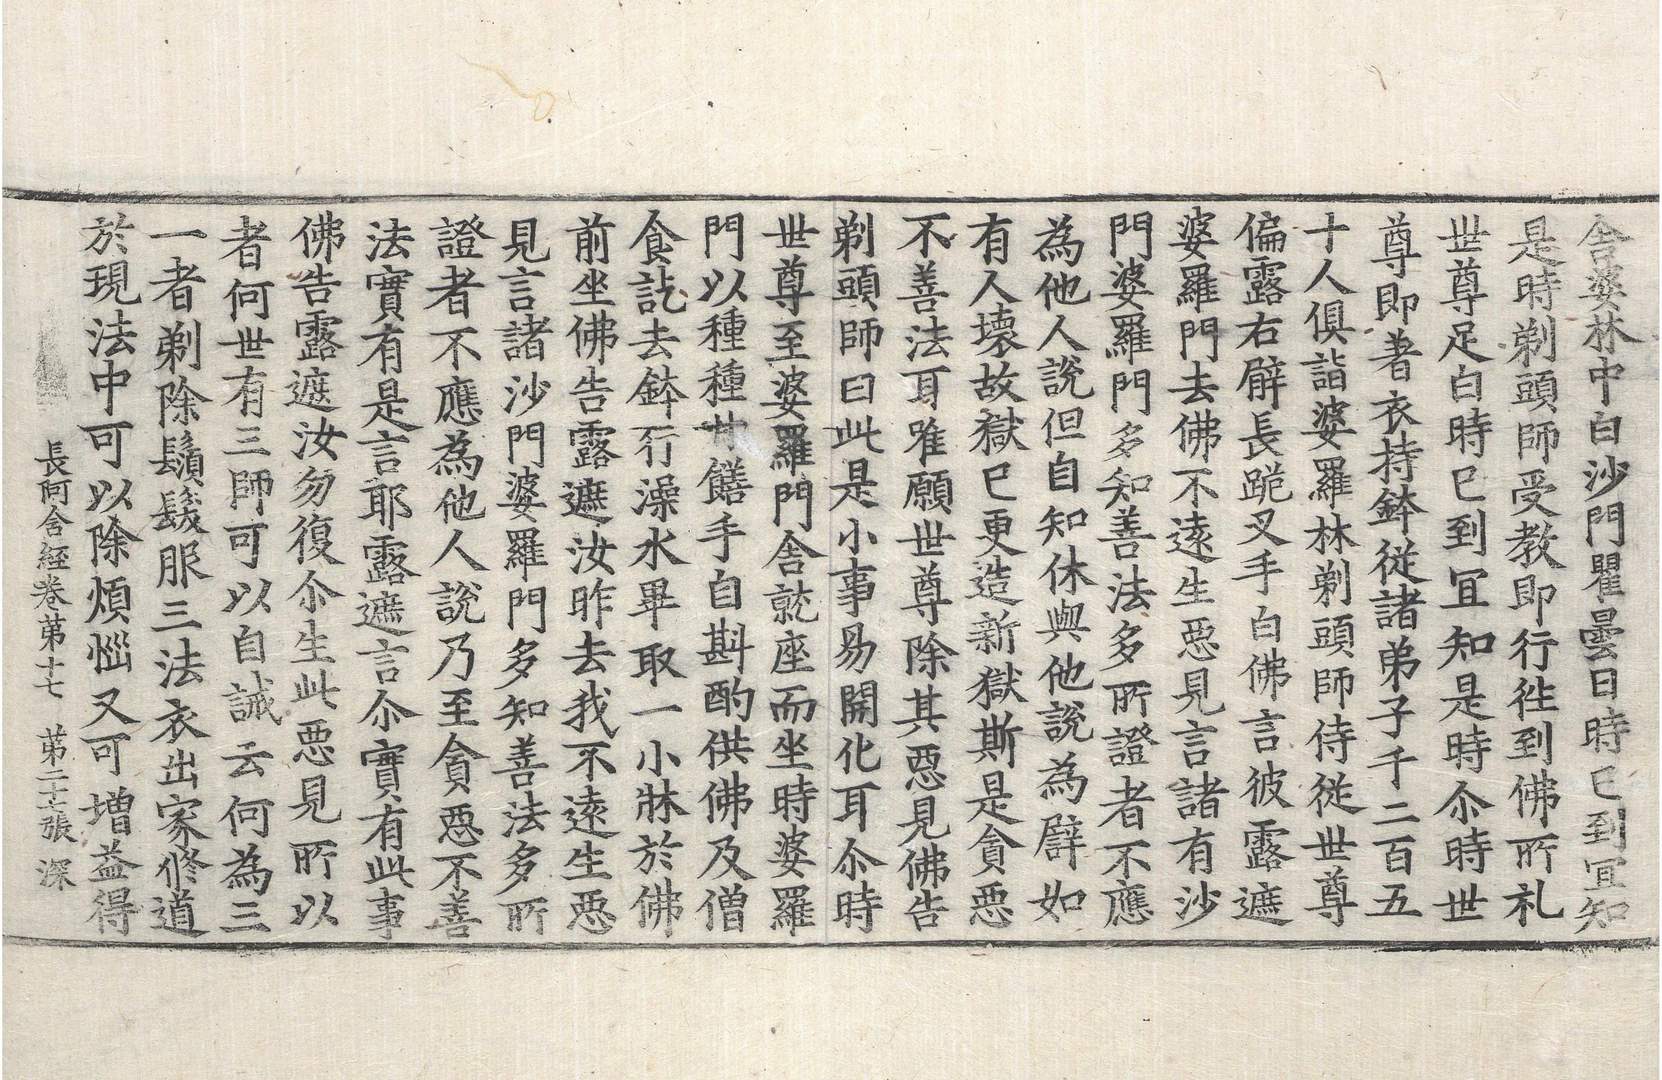 舍婆林中白沙門瞿曇日時已到宜知
是時剃頭師受教即行徃到佛所礼
世尊足白時已到宜知是時尒時世
尊即著衣持鉢從諸弟子千二百五
十人俱詣婆羅林剃頭師侍從世尊
偏露右臂長跪叉手白佛言彼露遮
婆羅門去佛不遠生惡見言諸有沙
門婆羅門多知善法多所證者不應
為他人說但自知休與他說為譬如
有人壞故獄已更造新獄斯是貪惡
不善法耳唯願世尊除其惡見佛告
剃頭師曰此是小事易開化耳尒時
世尊至婆羅門舍就座而坐時婆羅
門以種種甘饍手自斟酌供佛及僧
食訖去鉢行澡水畢取一小牀於佛
前坐佛告露遮汝昨去我不遠生惡
見言諸沙門婆羅門多知善法多所
證者不應為他人說乃至貪惡不善
法實有是言耶露遮言尒實有此事
佛告露遮汝勿復尒生此惡見所以
者何世有三師可以自誡云何為三
一者剃除鬚髮服三法衣出家修道
於現法中可以除煩惱又可增益得
長阿含經卷第十七 第二十七張 深